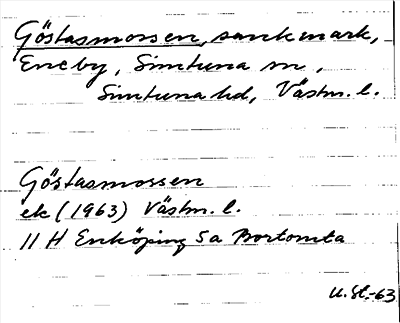 Göstasmossen, sankmark,
Eneby, Simtuna sn,
Simtuna hd, Västm. l.
Göstasmossen
ek (1963) Västm. l.
11 H Enköping 5a Bortomta
U.St.-63